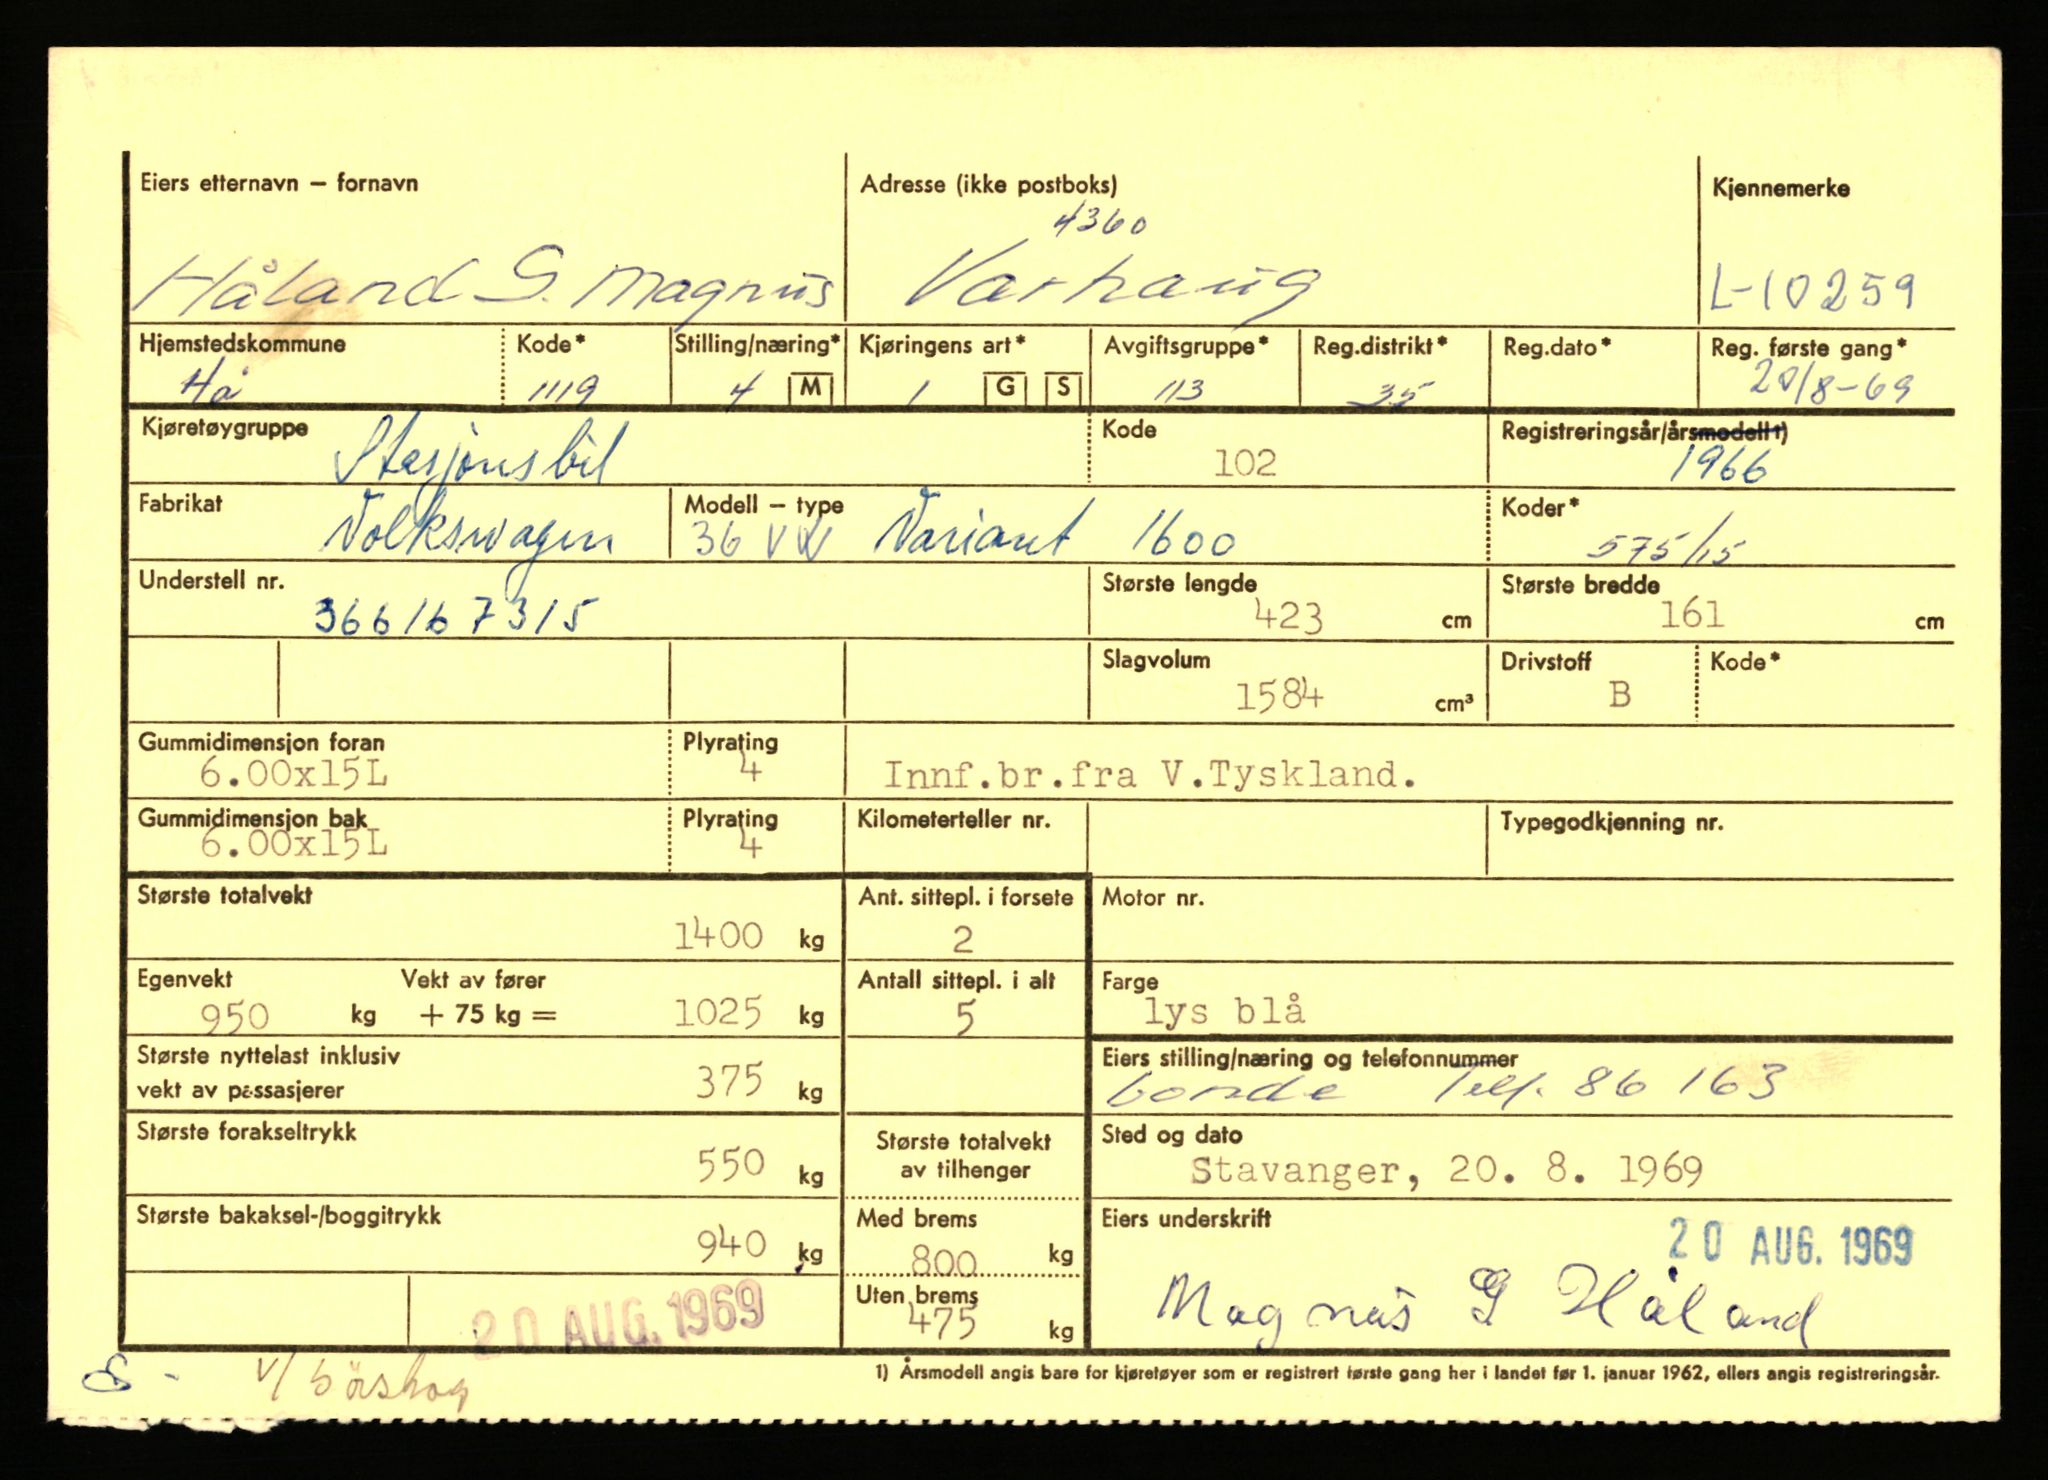 Eiers etternavn – fornavn Adresse (ikke postboks) Kjennemerke
4360
Håland S. Magnus Varhaug L-10259
Hjemstedskommune Kode* Stilling/næring* Kjøringens art* Avgiftsgruppe* Reg.distrikt* Reg.dato* Reg. første gang*
Hå 1119 4 M 1 G S 113 35 20/8-69
Kjøretøygruppe Kode Registreringsår/årsmodell 1)
Stasjonsbil 102 1966
Fabrikat Modell – type Koder*
Volkswagen 36 VW Variant 1600 575/15
Understell nr. Største lengde Største bredde
366167315 423 cm 161 cm
Slagvolum Drivstoff Kode*
1584 cm³ B
Gummidimensjon foran Plyrating
6.00x15L 4 Innf.br.fra V.Tyskland.
Gummidimensjon bak Plyrating Kilometerteller nr. Typegodkjenning nr.
6.00x15L 4
Største totalvekt Ant. sittepl. i forsete Motor nr.
1400 kg 2
Egenvekt Vekt av fører Antall sittepl. i alt Farge
950 kg + 75 kg = 1025 kg 5 lys blå
Største nyttelast inklusiv Eiers stilling/næring og telefonnummer
vekt av passasjerer 375 kg bonde Telf. 86 163
Største forakseltrykk Største totalvekt Sted og dato
550 kg av tilhenger Stavanger, 20. 8. 1969
Største bakaksel-/boggitrykk Med brems Eiers underskrift
940 kg 800 kg 20 AUG. 1969
Uten brems
20 AUG. 1969 475 kg Magnus S Håland
1) Årsmodell angis bare for kjøretøyer som er registrert første gang her i landet før 1. januar 1962, ellers angis registreringsår.